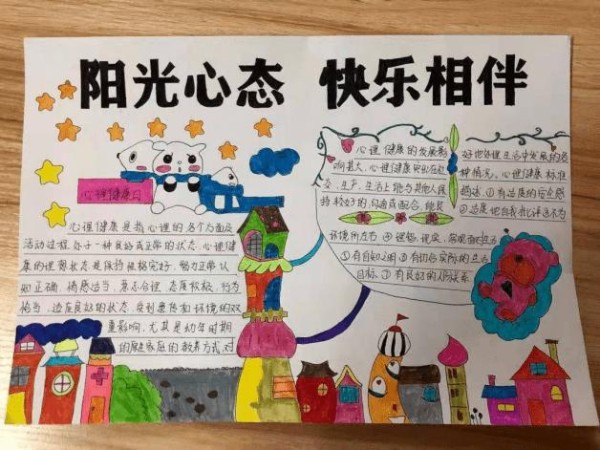 阳光心态 快乐相伴
心理健康日
心理健康是指心理的各个方面及
活动过程处于一种良好或正常的状态。心理健
康的理想状态是保持性格完好、智力正常、认
知正确、情感适当、意志合理、态度积极、行为
恰当、适应良好的状态。受到遗传和环境的双
重影响,尤其是幼年时期
的家庭的教养方式对
心理健康的发展影
响甚大。心理健康突出在社
交、生产、生活上能与其他人保
持较好的沟通或配合,能良
好地处理生活中发展的各
种情况。心理健康标准
①有适度的安全感
②适度地自我批评 不为
环境所左右 ④理智、现实、客观
①有自知之明 ⑥有切合实际的生活
目标。⑦有良好的人际关系